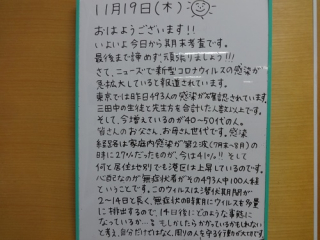 11月19日(木)
おはようございます!!
いよいよ今日から期末考査です。
最後まで諦めず、頑張りましょう!!!
さて、ニュースで新型コロナウィルスの感染が
急拡大していると報道されています。
東京では昨日493人の感染が確認されています。
三田中の生徒と先生方を合計した人数以上です。
そして、今増えているのが40~50代の人。
皆さんのお父さん、お母さん世代です。感染
経路は家庭内感染が第2波(7月末~8月)の
時に27%だったものが、今は41%!! そして
何と居住地別でも港区は上昇しているのです。
心配なのが無症状者がその493人中100人程
ということです。このウィルスは潜伏期間が
2~14日と長く、無症状の時期にウィルスを多量
に排出するので、14日後にどのような事態に
なっているか…。もしかしたらかかっているかもしれない
と考え、自分だけではなく、周りの人を守る行動が大切です